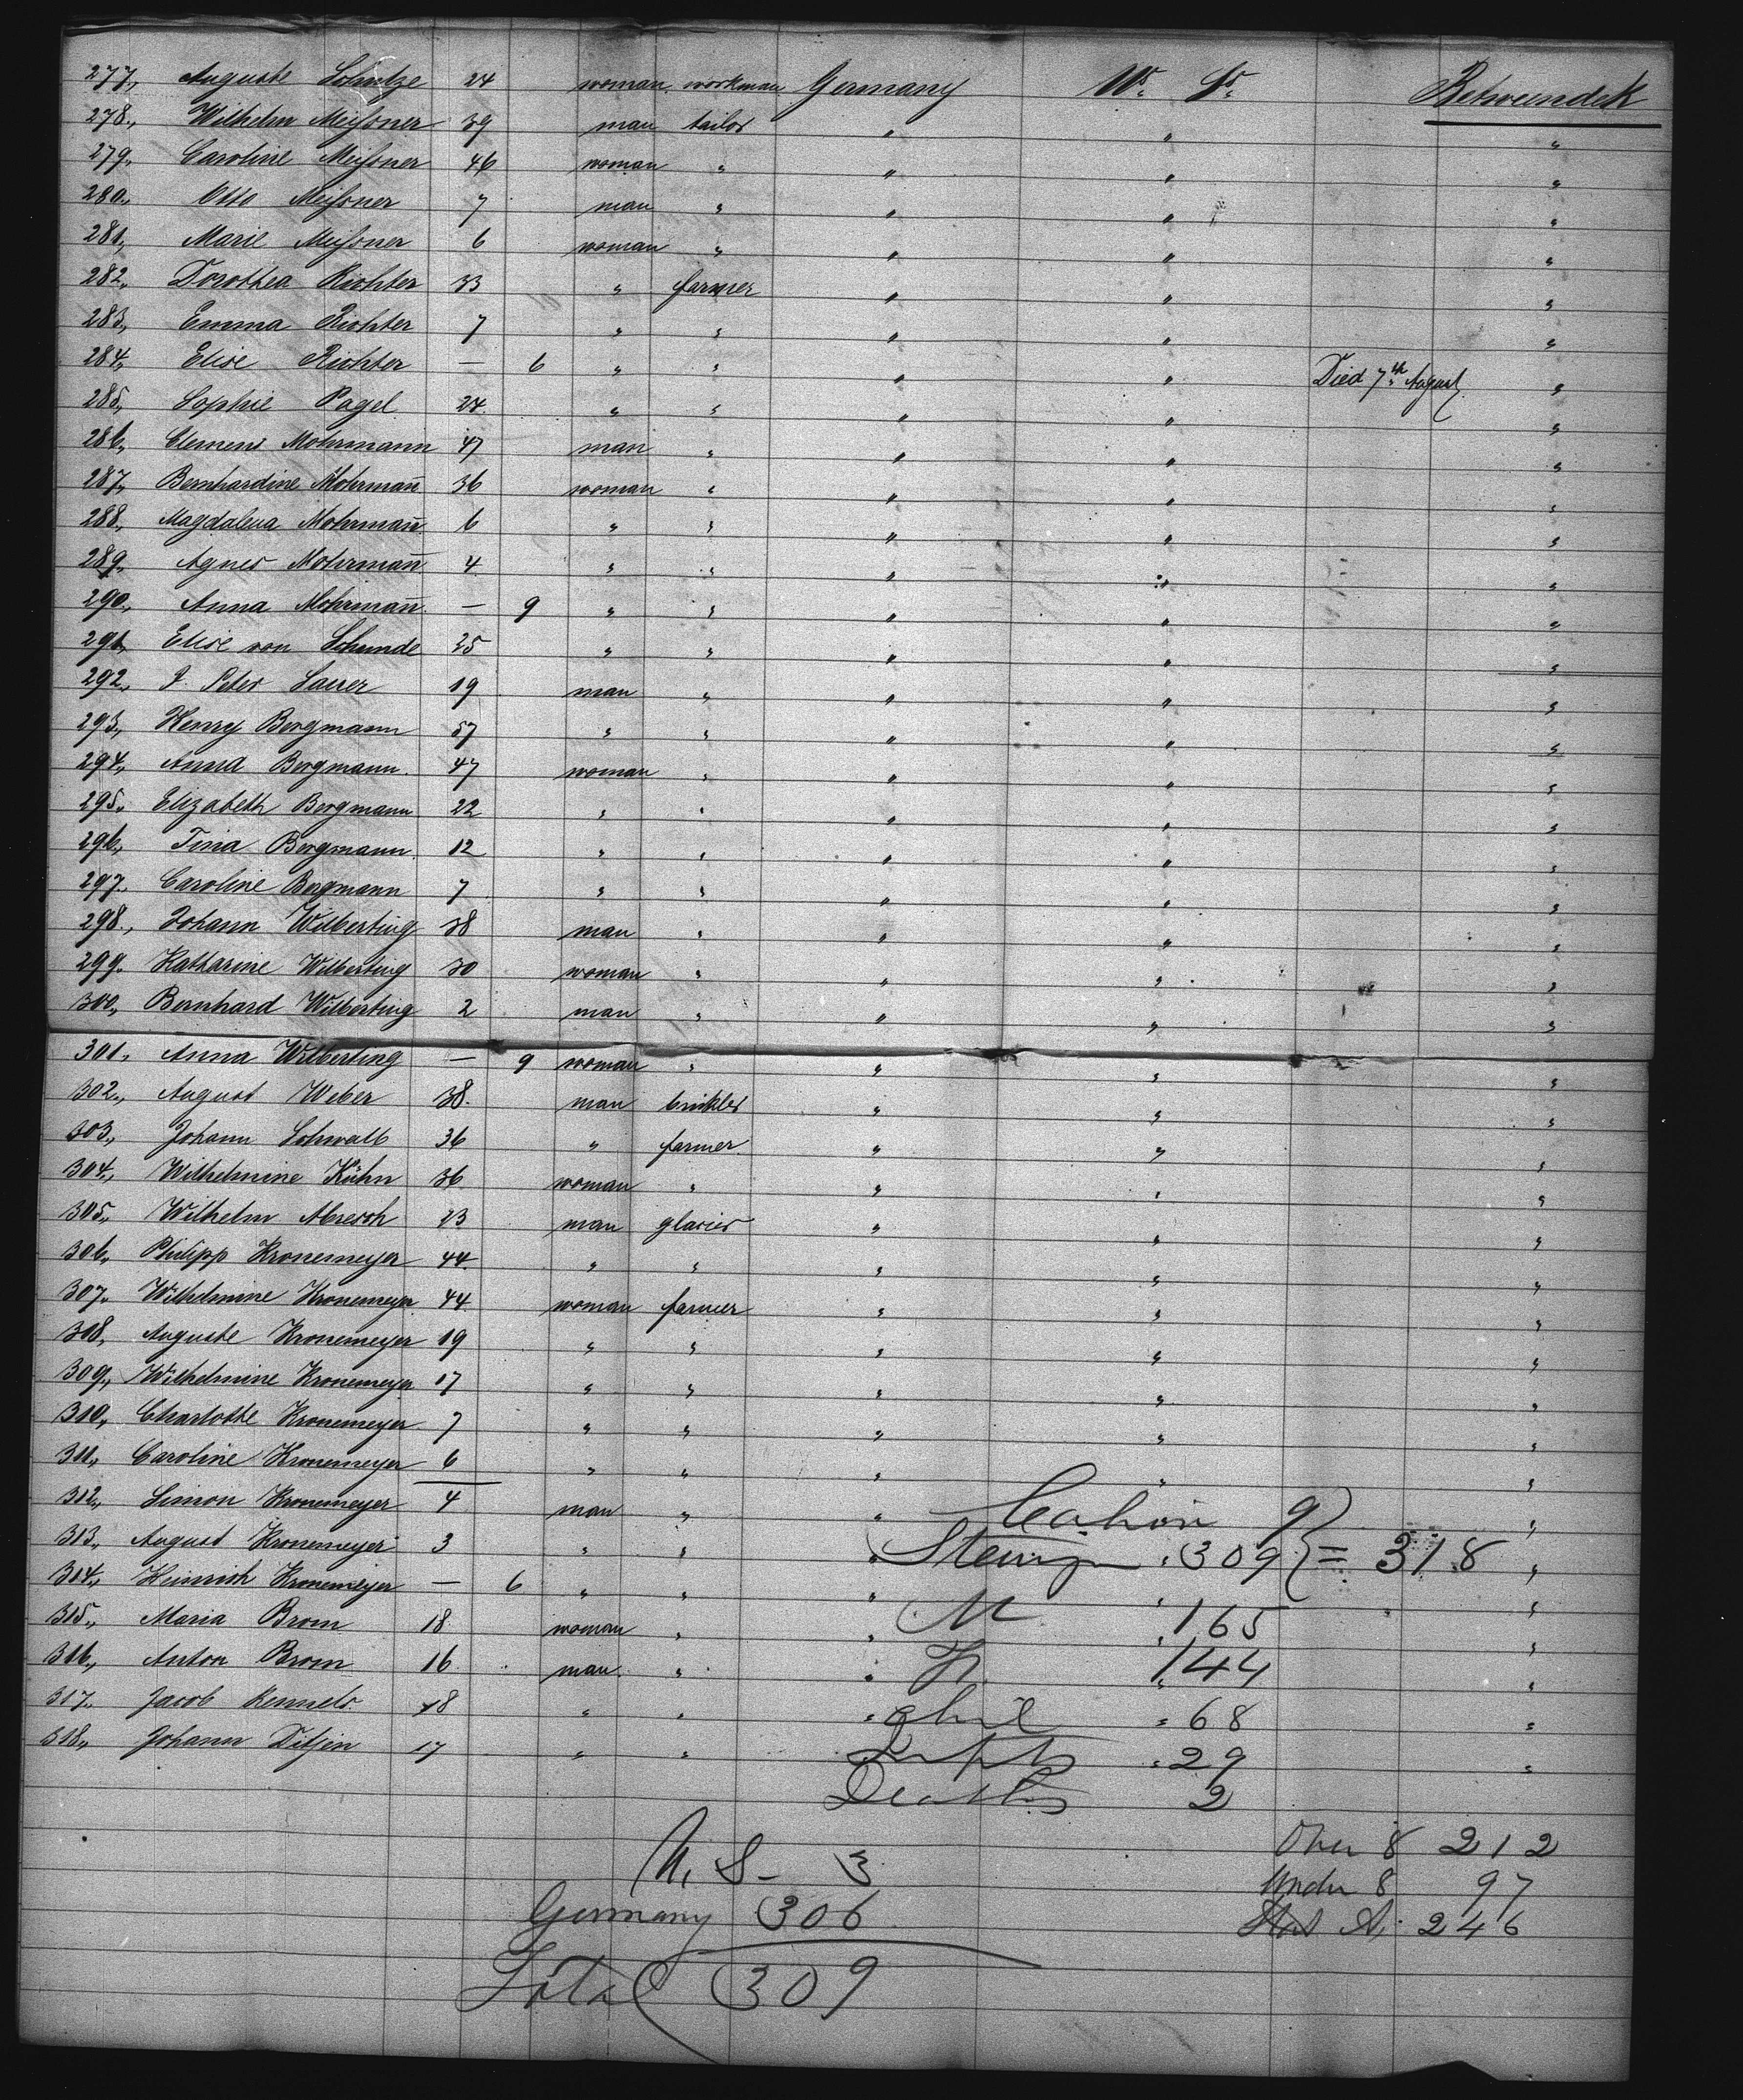 277., Auguste Schultze 24 woman workman Germany U. S. Betweendek
278., Wilhelm Meißner 39 man tailor " " "
279., Caroline Meißner 46 woman " " " "
280., Otto Meißner 7 man " " " "
281., Marie Meißner 6 woman " " " "
282., Dorothea Richter 33 " farmer " " "
283., Emma Richter 7 " " " " "
284., Elise Richter — 6 " " " " Died 7th August "
285., Sophie Pagel 24 " " " " "
286., Clemens Mohrmann 47 man " " " "
287., Bernhardine Mohrmañ 36 woman " " " "
288., Magdalena Mohrmañ 6 " " " " "
289., Agnes Mohrmañ 4 " " " " "
290., Anna Mohrmañ — 9 " " " " "
291., Elise von Schunde 25 " " " " "
292., J. Peter Sauer 19 man " " " "
293., Henry Bergmann 57 " " " " "
294., Anna Bergmann 47 woman " " " "
295., Elizabeth Bergmann 22 " " " " "
296., Tina Bergmann 12 " " " " "
297., Caroline Bergmann 7 " " " " "
298., Johann Wilberting 38 man " " " "
299., Katharine Wilberting 30 woman " " " "
300., Bernhard Wilberting 2 man " " " "
301., Anna Wilberting — 9 woman " " " "
302., August Weber 38 man " " "
303., Johann Schwalb 36 " farmer " " "
304., Wilhelmine Kühn 36 woman " " " "
305., Wilhelm Abresch 23 man glacier " " "
306., Philipp Kronemeyer 44 " " " " "
307., Wilhelmine Kronemeyer 44 woman farmer " " "
308., Auguste Kronemeyer 19 " " " " "
309., Wilhelmine Kronemeyer 17 " " " " "
310., Charlotte Kronemeyer 7 " " " " "
311., Caroline Kronemeyer 6 " " " " "
312., Simon Kronemeyer 4 man " " Cabin 9 "
313., August Kronemeyer 3 " " " 309 = 318 "
314., Heinrich Kronemeyer — 6 " " " " "
315., Maria Brom 18 woman " " M 165 "
316., Anton Brom 16 man " " 144 "
317., Jacob 18 " " " 68 "
318., Johann Ditjen 17 " " " 29 "
Deaths 2
Over 8 212
U. S - 3 Under 8 97
Germany 306 246
Total 309